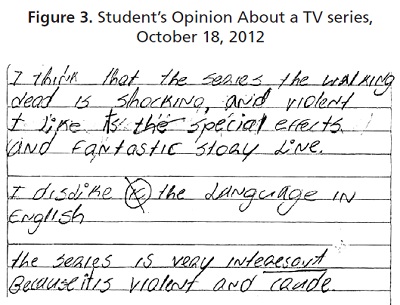 Figure 3. Student's Opinion About a TV series,
October 18, 2012
I think that the series the walking
dead is shocking, and violent
I like the special effects.
and fantastic story line.
I dislike the language in
English
the series is very interesant
Because it is violent and